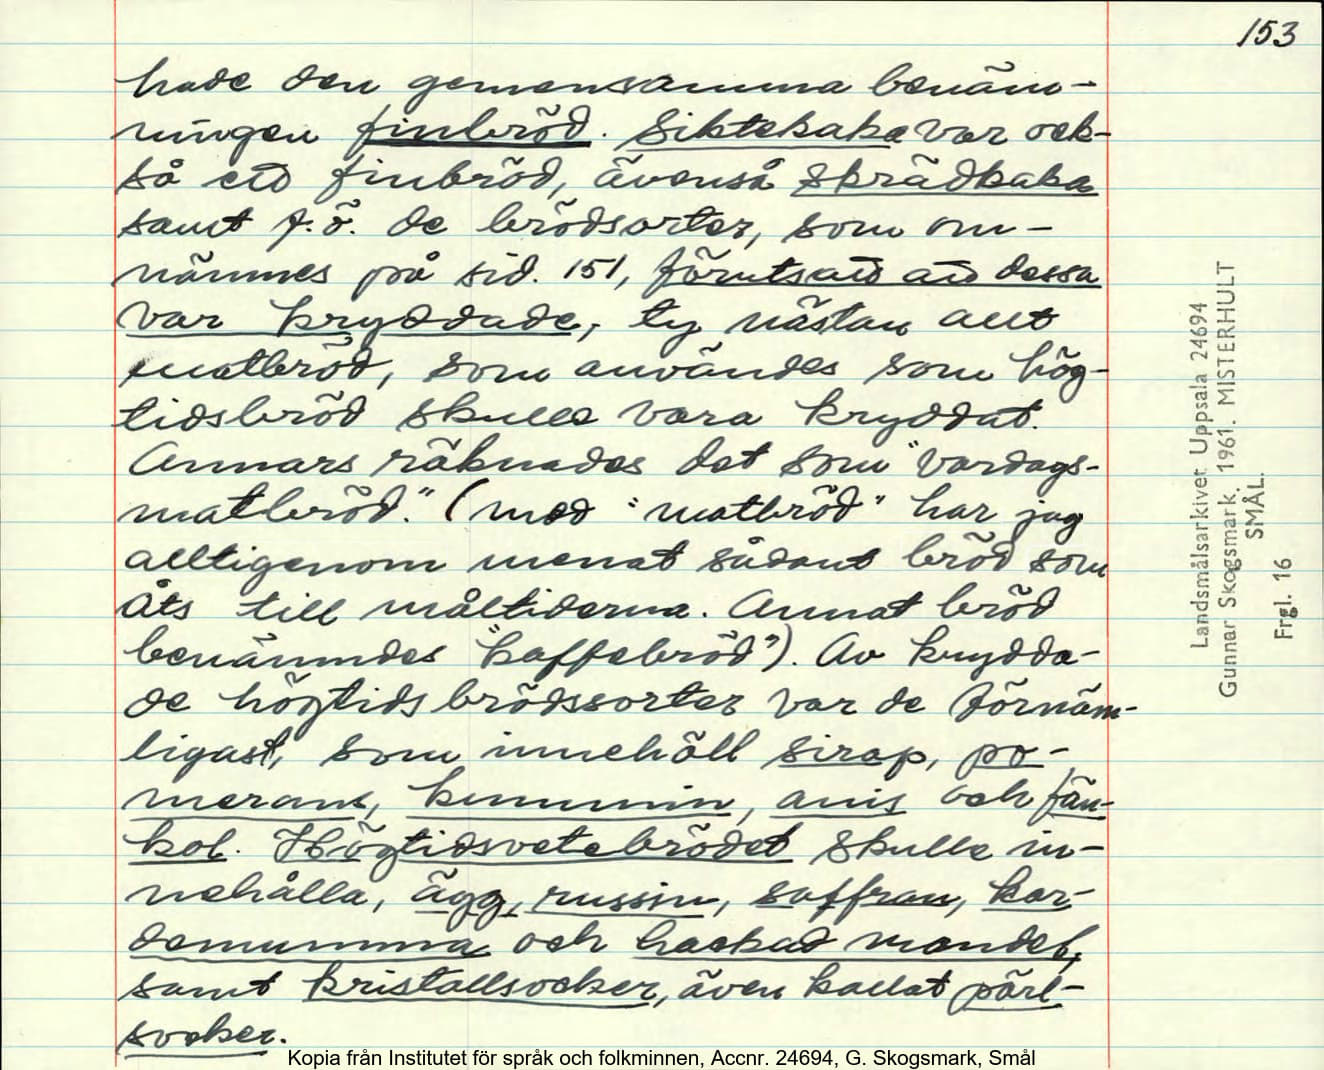 153
hade den gemensamma benäm-
ningen finbröd. Siktekaka var ock-
så ett finbröd, ävenså skrädkaka
samt f.ö. de brödsorter, som om-
nämnes på sid. 151, förutsatt att dessa
var kryddade, ty nästan allt
matbröd, som användes som hög-
tidsbröd skulle vara kryddat.
Annars räknades det som "vardags-
matbröd." (med "matbröd" har jag
alltigenom menat sådant bröd som
åts till måltiderna. Annat bröd
benämndes "kaffebröd"). Av krydda-
de högtidsbrödssorter var de förnäm-
ligast, som innehöll sirap, po-
merans, kummin, anis och fän-
kol. Högtidsvetebrödet skulle in-
nehålla, ägg, russin, saffran, kar-
demumma och hackad mandel,
samt kristallsocker, även kallat pärl-
socker.
Landsmålsarkivet Uppsala 24694
Gunnar Skogsmark. 1961. MISTERHULT
SMÅL.
Frgl. 16
Kopia från Institutet för språk och folkminnen, Accnr. 24694, G. Skogsmark, Smål